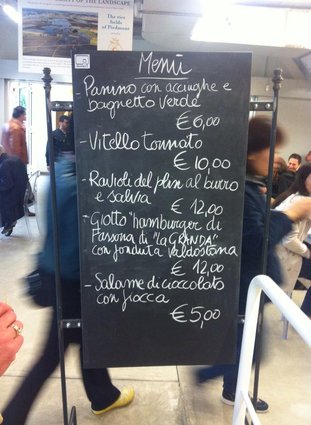 OF THE LANDSCAPE
The rice
fields
of
Piedmont
Menù
- Panino con acciughe e
bagnetto verde
€ 6,00
- Vitello tonnato
€ 10,00
- Ravioli del plin al burro
e salvia
€ 12,00
- Giotto "hamburger di
Fassona di "La GRANDA"
con fonduta valdostana
€ 12,00
- Salame di cioccolato
con fiocca
€ 5,00